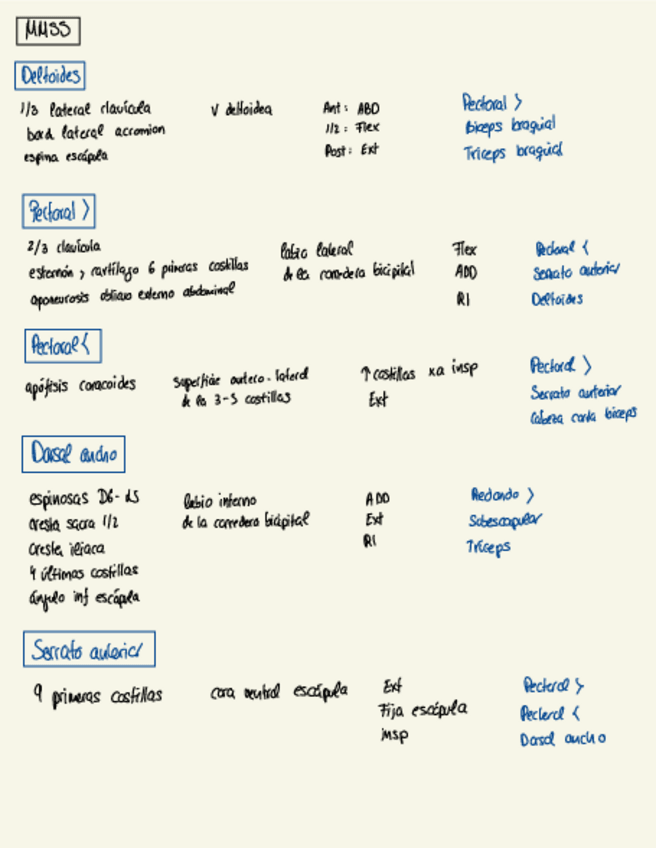 MMSS
Deltoides
1/3 lateral clavícula V deltoidea Ant: ABD Pectoral >
bord lateral acromion 1/2: Flex Biceps braquial
espina escápula Post: Ext Triceps braquial
Pectoral >
2/3 clavícula labio lateral Flex Pectoral <
esternón, cartílago 6 primeras costillas de la corredera bicipital ADD Serrato anterior
aponeurosis oblicuo externo abdominal RI Deltoides
Pectoral <
apófisis coracoides superficie antero-lateral ↑ costillas xa insp Pectoral >
de la 3-5 costillas Ext Serrato anterior
Cabeza corta biceps
Dorsal ancho
espinosas D6-L5 labio interno ADD Redondo >
cresta sacra 1/2 de la corredera bicipital Ext Subescapular
cresta iliaca RI Triceps
4 últimas costillas
ángulo inf escápula
Serrato anterior
9 primeras costillas cara ventral escápula Ext Pectoral >
Fija escápula Pectoral <
insp Dorsal ancho